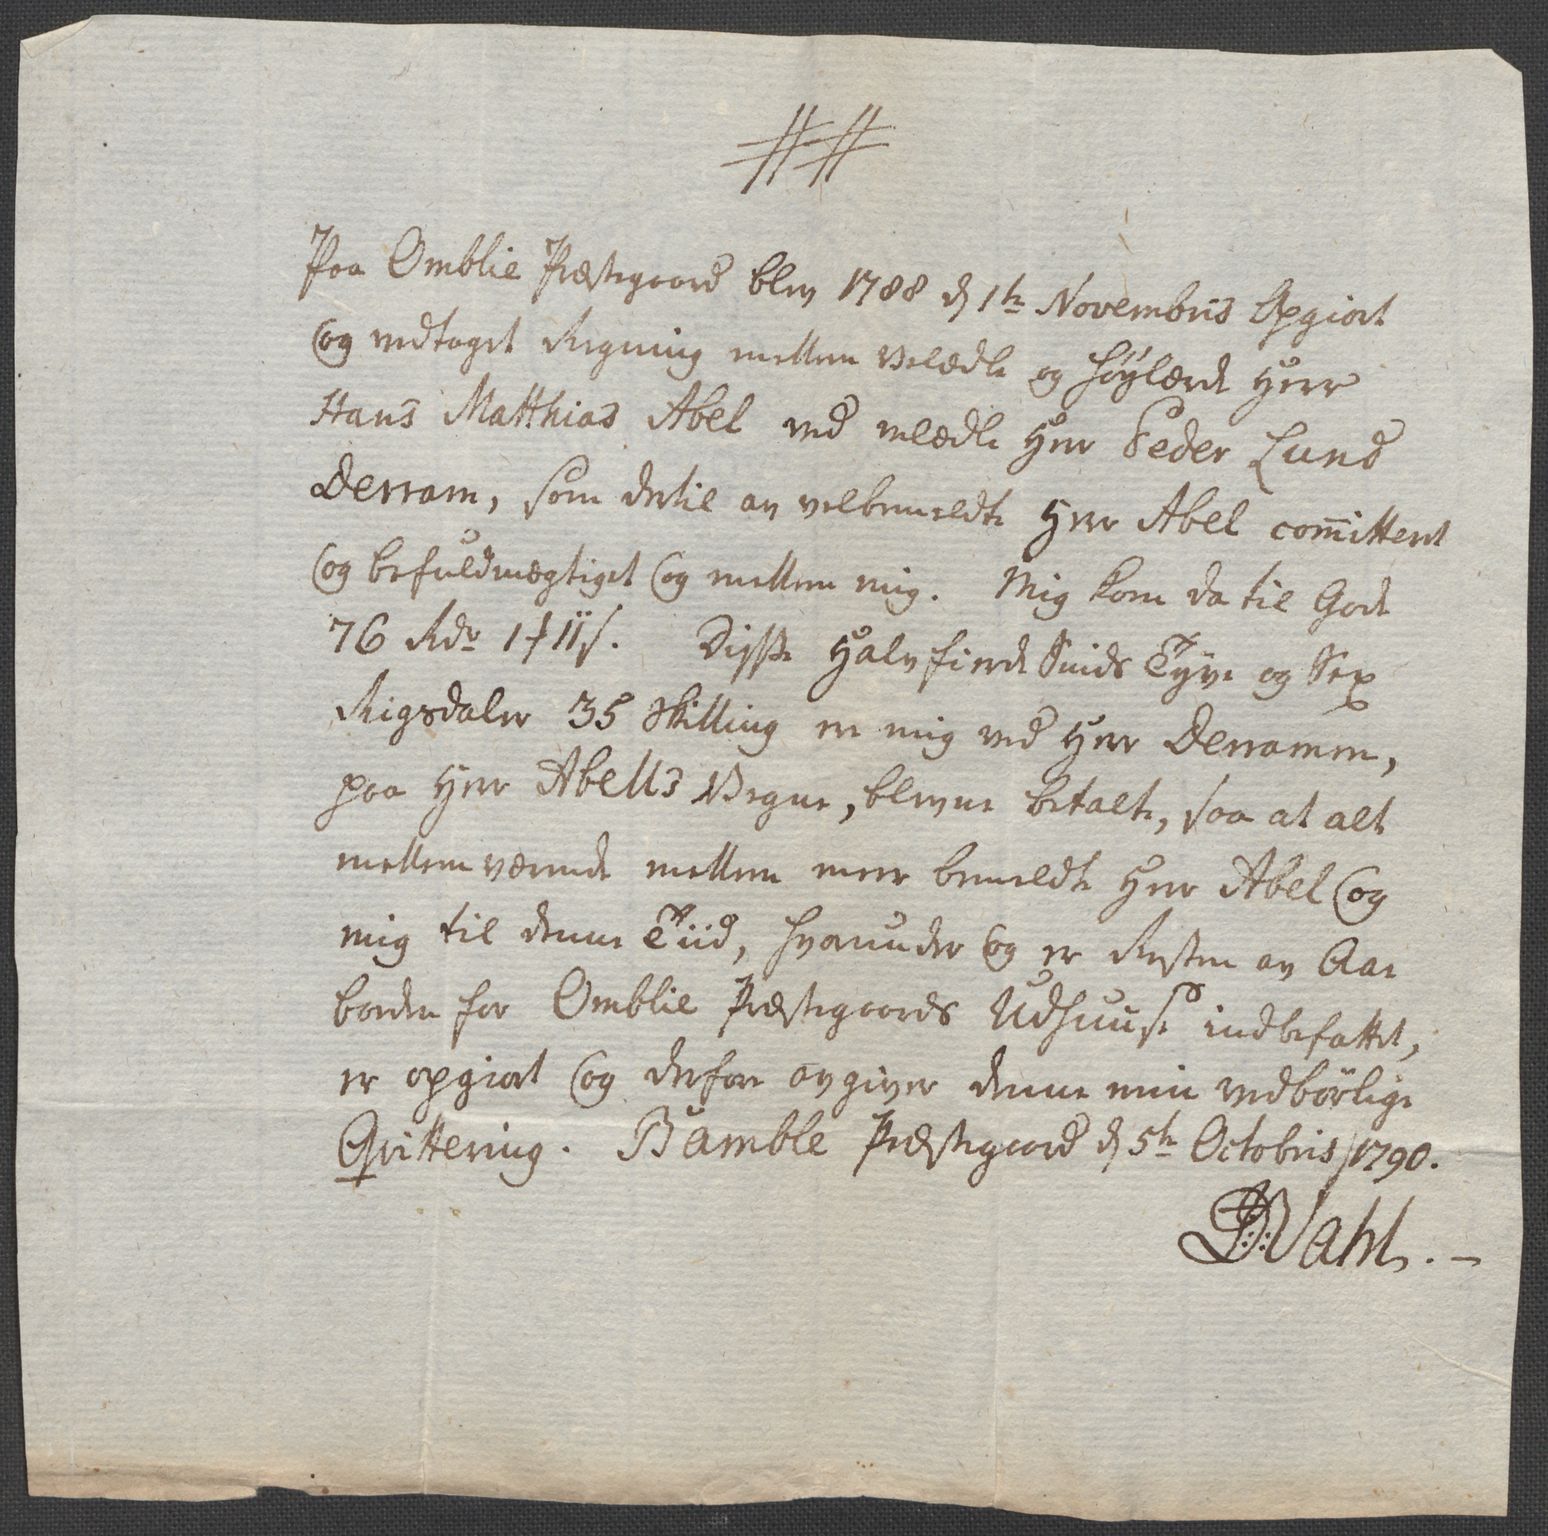 Paa Omblie Præstegaard blev 1788 d 1te Novembris Opgiort
Og vedtaget Regning mellem Velædle og Høylærde Herr
Hans Matthias Abel ved velædle Herr Peder Lund
Derram, som dertil av velbemeldte Herr Abel com̄ittert
Og befuldmægtiget Og mellem mig. Mig kom da til Gode
76 Rdr 1 ℔ 11 s. Disse Halvfierdesinds Tyve og Sex
Rigsdaler 35 Skilling er mig ved Herr Derramm,
paa Herr Abells Vegne, blevne betalte, saa at alt
mellemværende mellem meer bemeldte Herr Abel Og
mig til denne Tiid, hvorunder Og er Resten av Aae
boeden for Omblie Præstegaards Udhuuse indbefattet,
er opgiort Og derfor avgiver denne min vedbörlige
Qvittering. Bamble Præstegaard d 5te Octobris 1790.
D: Vahl. –